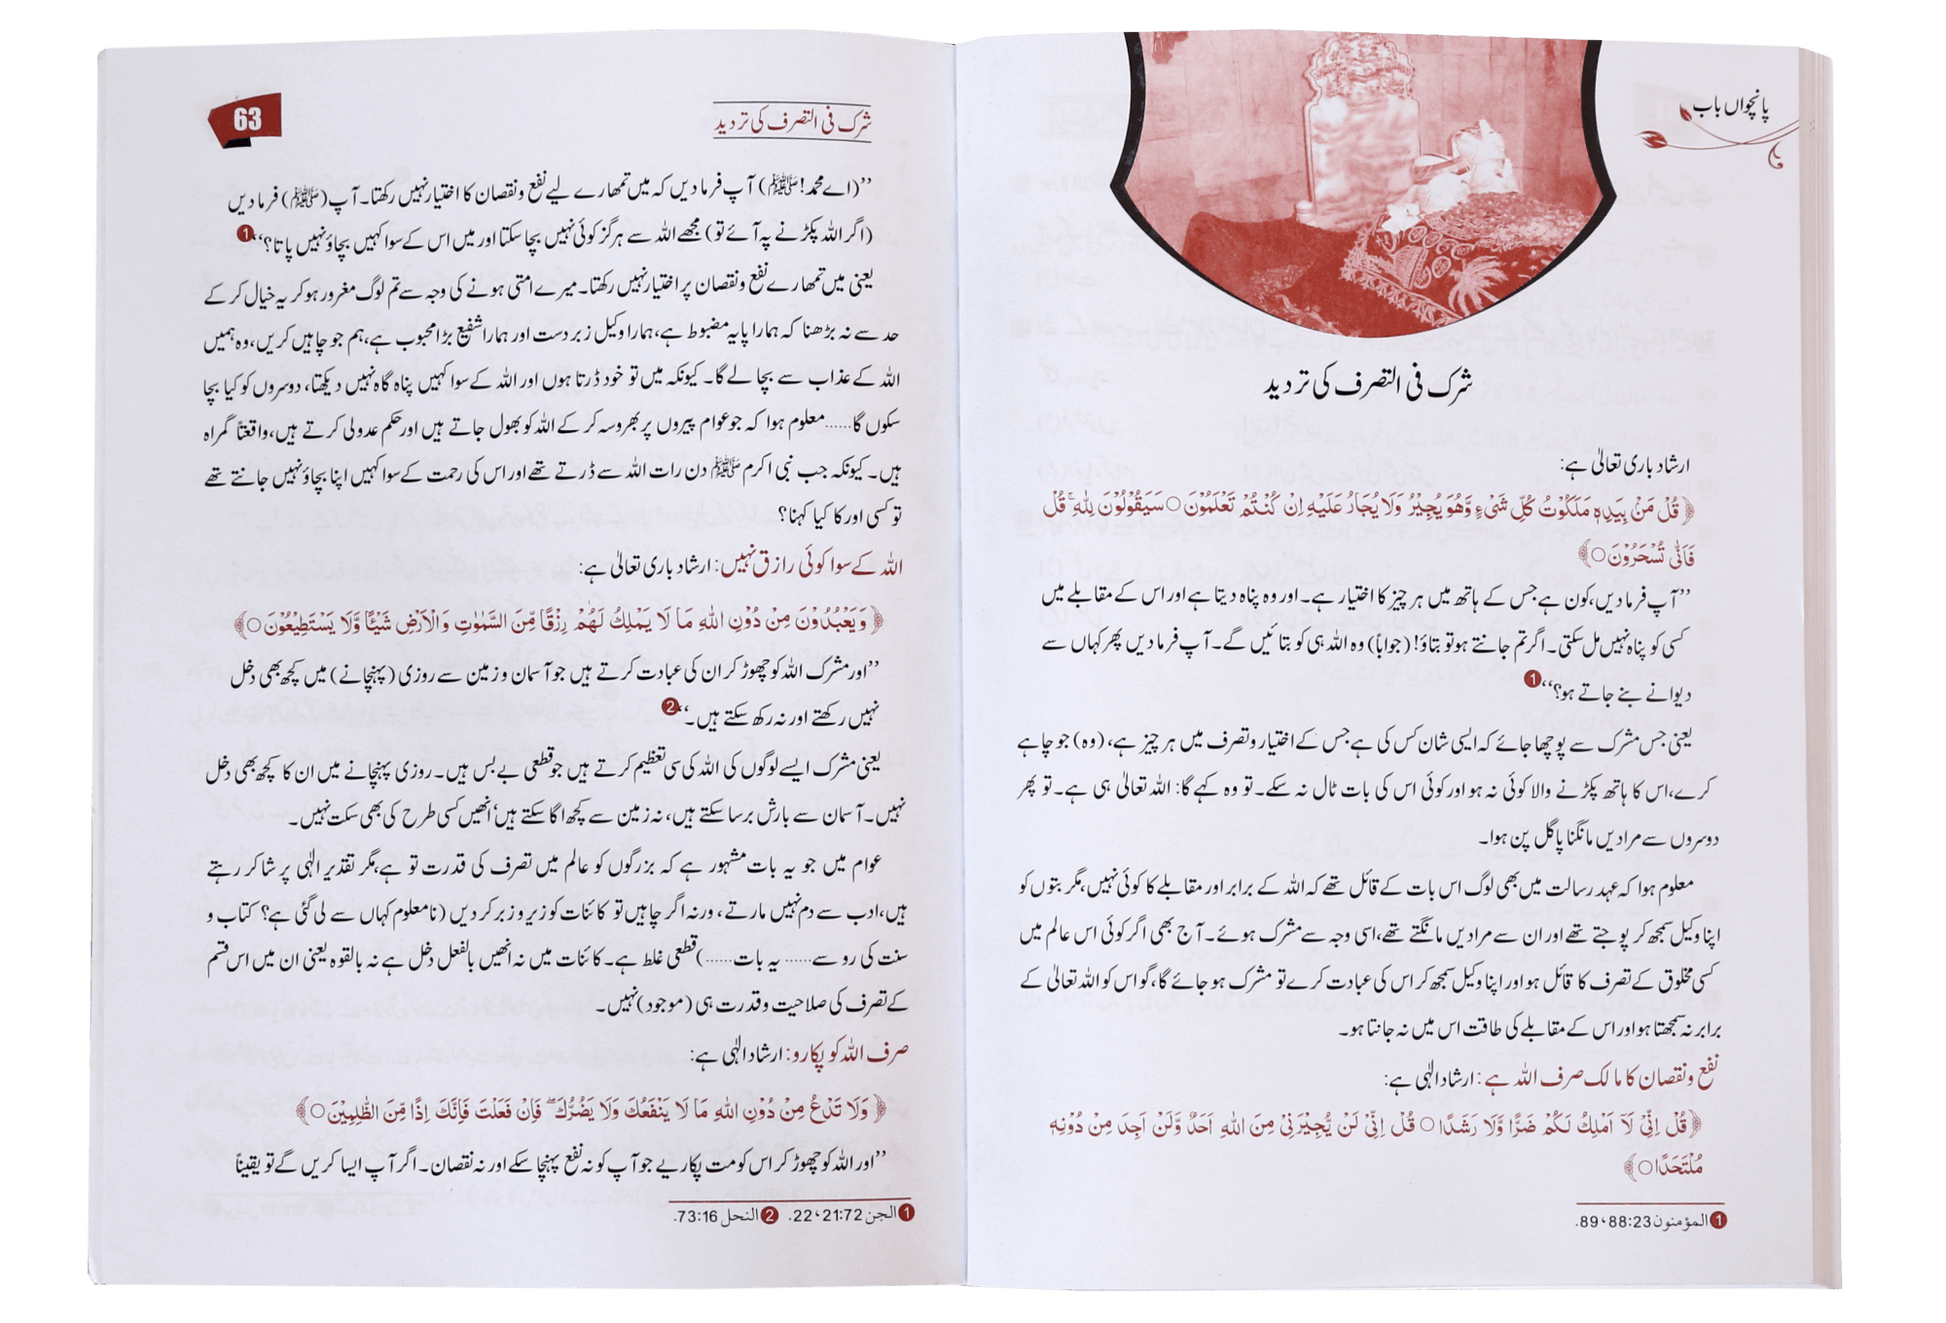 پانچواں باب
شرک فی التصرف کی تردید
ارشاد باری تعالیٰ ہے:
﴿ قُلْ مَنْۢ بِیَدِهٖ مَلَكُوْتُ كُلِّ شَیْءٍ وَّهُوَ یُجِیْرُ وَلَا یُجَارُ عَلَیْهِ اِنْ كُنْتُمْ تَعْلَمُوْنَ○ سَیَقُوْلُوْنَ لِلّٰهِ ؕ قُلْ
فَاَنّٰى تُسْحَرُوْنَ○﴾
’’آپ فرما دیں، کون ہے جس کے ہاتھ میں ہر چیز کا اختیار ہے۔ اور وہ پناہ دیتا ہے اور اس کے مقابلے میں
کسی کو پناہ نہیں مل سکتی۔ اگر تم جانتے ہو تو بتاؤ! (جواباً) وہ اللہ ہی کو بتائیں گے۔ آپ فرما دیں پھر کہاں سے
دیوانے بنے جاتے ہو؟‘‘ 1
یعنی جس مشرک سے پوچھا جائے کہ ایسی شان کس کی ہے جس کے اختیار و تصرف میں ہر چیز ہے، (وہ) جو چاہے
کرے، اس کا ہاتھ پکڑنے والا کوئی نہ ہو اور کوئی اس کی بات ٹال نہ سکے۔ تو وہ کہے گا: اللہ تعالیٰ ہی ہے۔ تو پھر
دوسروں سے مرادیں مانگنا پاگل پن ہوا۔
معلوم ہوا کہ عہد رسالت میں بھی لوگ اس بات کے قائل تھے کہ اللہ کے برابر اور مقابلے کا کوئی نہیں، مگر بتوں کو
اپنا وکیل سمجھ کر پوجتے تھے اور ان سے مرادیں مانگتے تھے، اسی وجہ سے مشرک ہوئے۔ آج بھی اگر کوئی اس عالم میں
کسی مخلوق کے تصرف کا قائل ہو اور اپنا وکیل سمجھ کر اس کی عبادت کرے تو مشرک ہو جائے گا، گو اس کو اللہ تعالیٰ کے
برابر نہ سمجھتا ہو اور اس کے مقابلے کی طاقت اس میں نہ جانتا ہو۔
نفع و نقصان کا مالک صرف اللہ ہے: ارشاد الٰہی ہے:
﴿ قُلْ اِنِّیْ لَاۤ اَمْلِكُ لَكُمْ ضَرًّا وَّلَا رَشَدًا○ قُلْ اِنِّیْ لَنْ یُّجِیْرَنِیْ مِنَ اللّٰهِ اَحَدٌ وَّلَنْ اَجِدَ مِنْ دُوْنِهٖ
مُلْتَحَدًا○﴾
1 المؤمنون 88:23، 89.
شرک فی التصرف کی تردید
63
’’(اے محمد! ﷺ) آپ فرما دیں کہ میں تمھارے لیے نفع و نقصان کا اختیار نہیں رکھتا۔ آپ (ﷺ) فرما دیں
(اگر اللہ پکڑنے پہ آئے تو) مجھے اللہ سے ہرگز کوئی نہیں بچا سکتا اور میں اس کے سوا کہیں بچاؤ نہیں پاتا؟‘‘ 1
یعنی میں تمھارے نفع و نقصان پر اختیار نہیں رکھتا۔ میرے امتی ہونے کی وجہ سے تم لوگ مغرور ہو کر یہ خیال کر کے
حد سے نہ بڑھنا کہ ہمارا پایہ مضبوط ہے، ہمارا وکیل زبردست اور ہمارا شفیع بڑا محبوب ہے، ہم جو چاہیں کریں، وہ ہمیں
اللہ کے عذاب سے بچا لے گا۔ کیونکہ میں تو خود ڈرتا ہوں اور اللہ کے سوا کہیں پناہ گاہ نہیں دیکھتا، دوسروں کو کیا بچا
سکوں گا...... معلوم ہوا کہ جو عوام پیروں پر بھروسہ کر کے اللہ کو بھول جاتے ہیں اور حکم عدولی کرتے ہیں، واقعتاً گمراہ
ہیں۔ کیونکہ جب نبی اکرم ﷺ دن رات اللہ سے ڈرتے تھے اور اس کی رحمت کے سوا کہیں اپنا بچاؤ نہیں جانتے تھے
تو کسی اور کا کیا کہنا؟
اللہ کے سوا کوئی رازق نہیں: ارشاد باری تعالیٰ ہے:
﴿ وَیَعْبُدُوْنَ مِنْ دُوْنِ اللّٰهِ مَا لَا یَمْلِكُ لَهُمْ رِزْقًا مِّنَ السَّمٰوٰتِ وَالْاَرْضِ شَیْـًٔا وَّلَا یَسْتَطِیْعُوْنَ○﴾
’’اور مشرک اللہ کو چھوڑ کر ان کی عبادت کرتے ہیں جو آسمان و زمین سے روزی (پہنچانے) میں کچھ بھی دخل
نہیں رکھتے اور نہ رکھ سکتے ہیں۔‘‘ 2
یعنی مشرک ایسے لوگوں کی اللہ کی سی تعظیم کرتے ہیں جو قطعی بے بس ہیں۔ روزی پہنچانے میں ان کا کچھ بھی دخل
نہیں۔ آسمان سے بارش برسا سکتے ہیں، نہ زمین سے کچھ اگا سکتے ہیں‘ انھیں کسی طرح کی بھی سکت نہیں۔
عوام میں جو یہ بات مشہور ہے کہ بزرگوں کو عالم میں تصرف کی قدرت تو ہے، مگر تقدیر الٰہی پر شاکر رہتے
ہیں، ادب سے دم نہیں مارتے، ورنہ اگر چاہیں تو کائنات کو زیر و زبر کر دیں (نامعلوم کہاں سے لی گئی ہے؟ کتاب و
سنت کی رو سے...... یہ بات......) قطعی غلط ہے۔ کائنات میں نہ انھیں بالفعل دخل ہے نہ بالقوہ یعنی ان میں اس قسم
کے تصرف کی صلاحیت و قدرت ہی (موجود) نہیں۔
صرف اللہ کو پکارو: ارشاد الٰہی ہے:
﴿ وَلَا تَدْعُ مِنْ دُوْنِ اللّٰهِ مَا لَا یَنْفَعُكَ وَلَا یَضُرُّكَ ۚ فَاِنْ فَعَلْتَ فَاِنَّكَ اِذًا مِّنَ الظّٰلِمِیْنَ○﴾
’’اور اللہ کو چھوڑ کر اس کو مت پکاریے جو آپ کو نہ نفع پہنچا سکے اور نہ نقصان۔ اگر آپ ایسا کریں گے تو یقیناً
1 الجن 21:72، 22. 2 النحل 73:16.